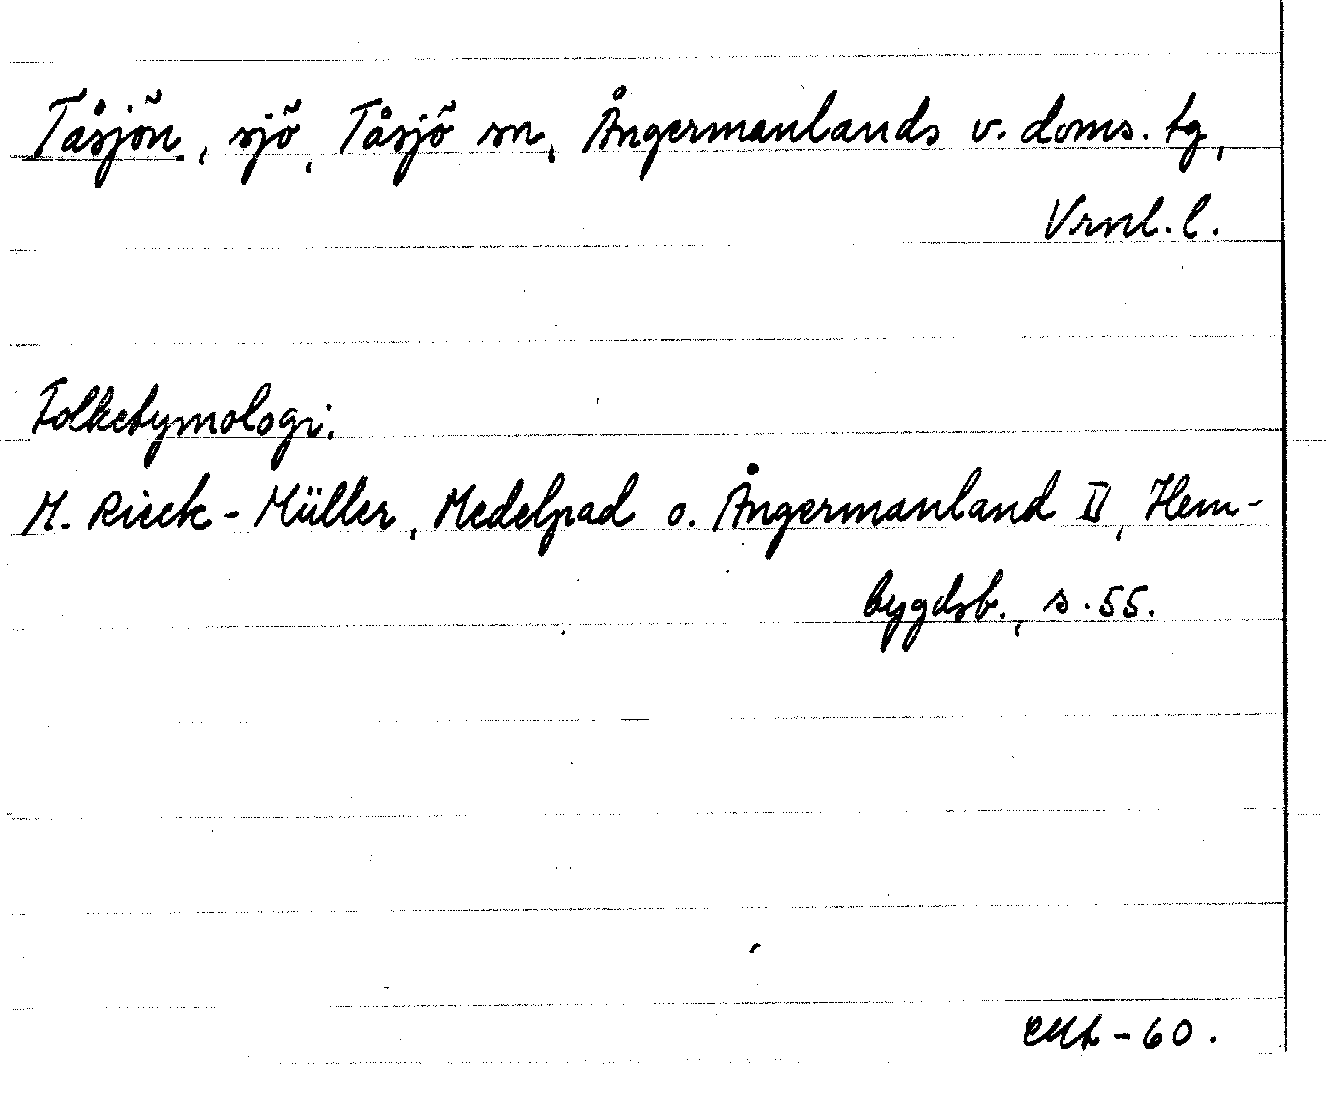 Tåsjön, sjö, Tåsjö sn, Ångermanlands v. doms. tg,
Vrnl. l.
Folketymologi.
M. Rieck-Müller, Medelpad o. Ångermanland II, Hem-
bygdsb., s. 55.
-60.